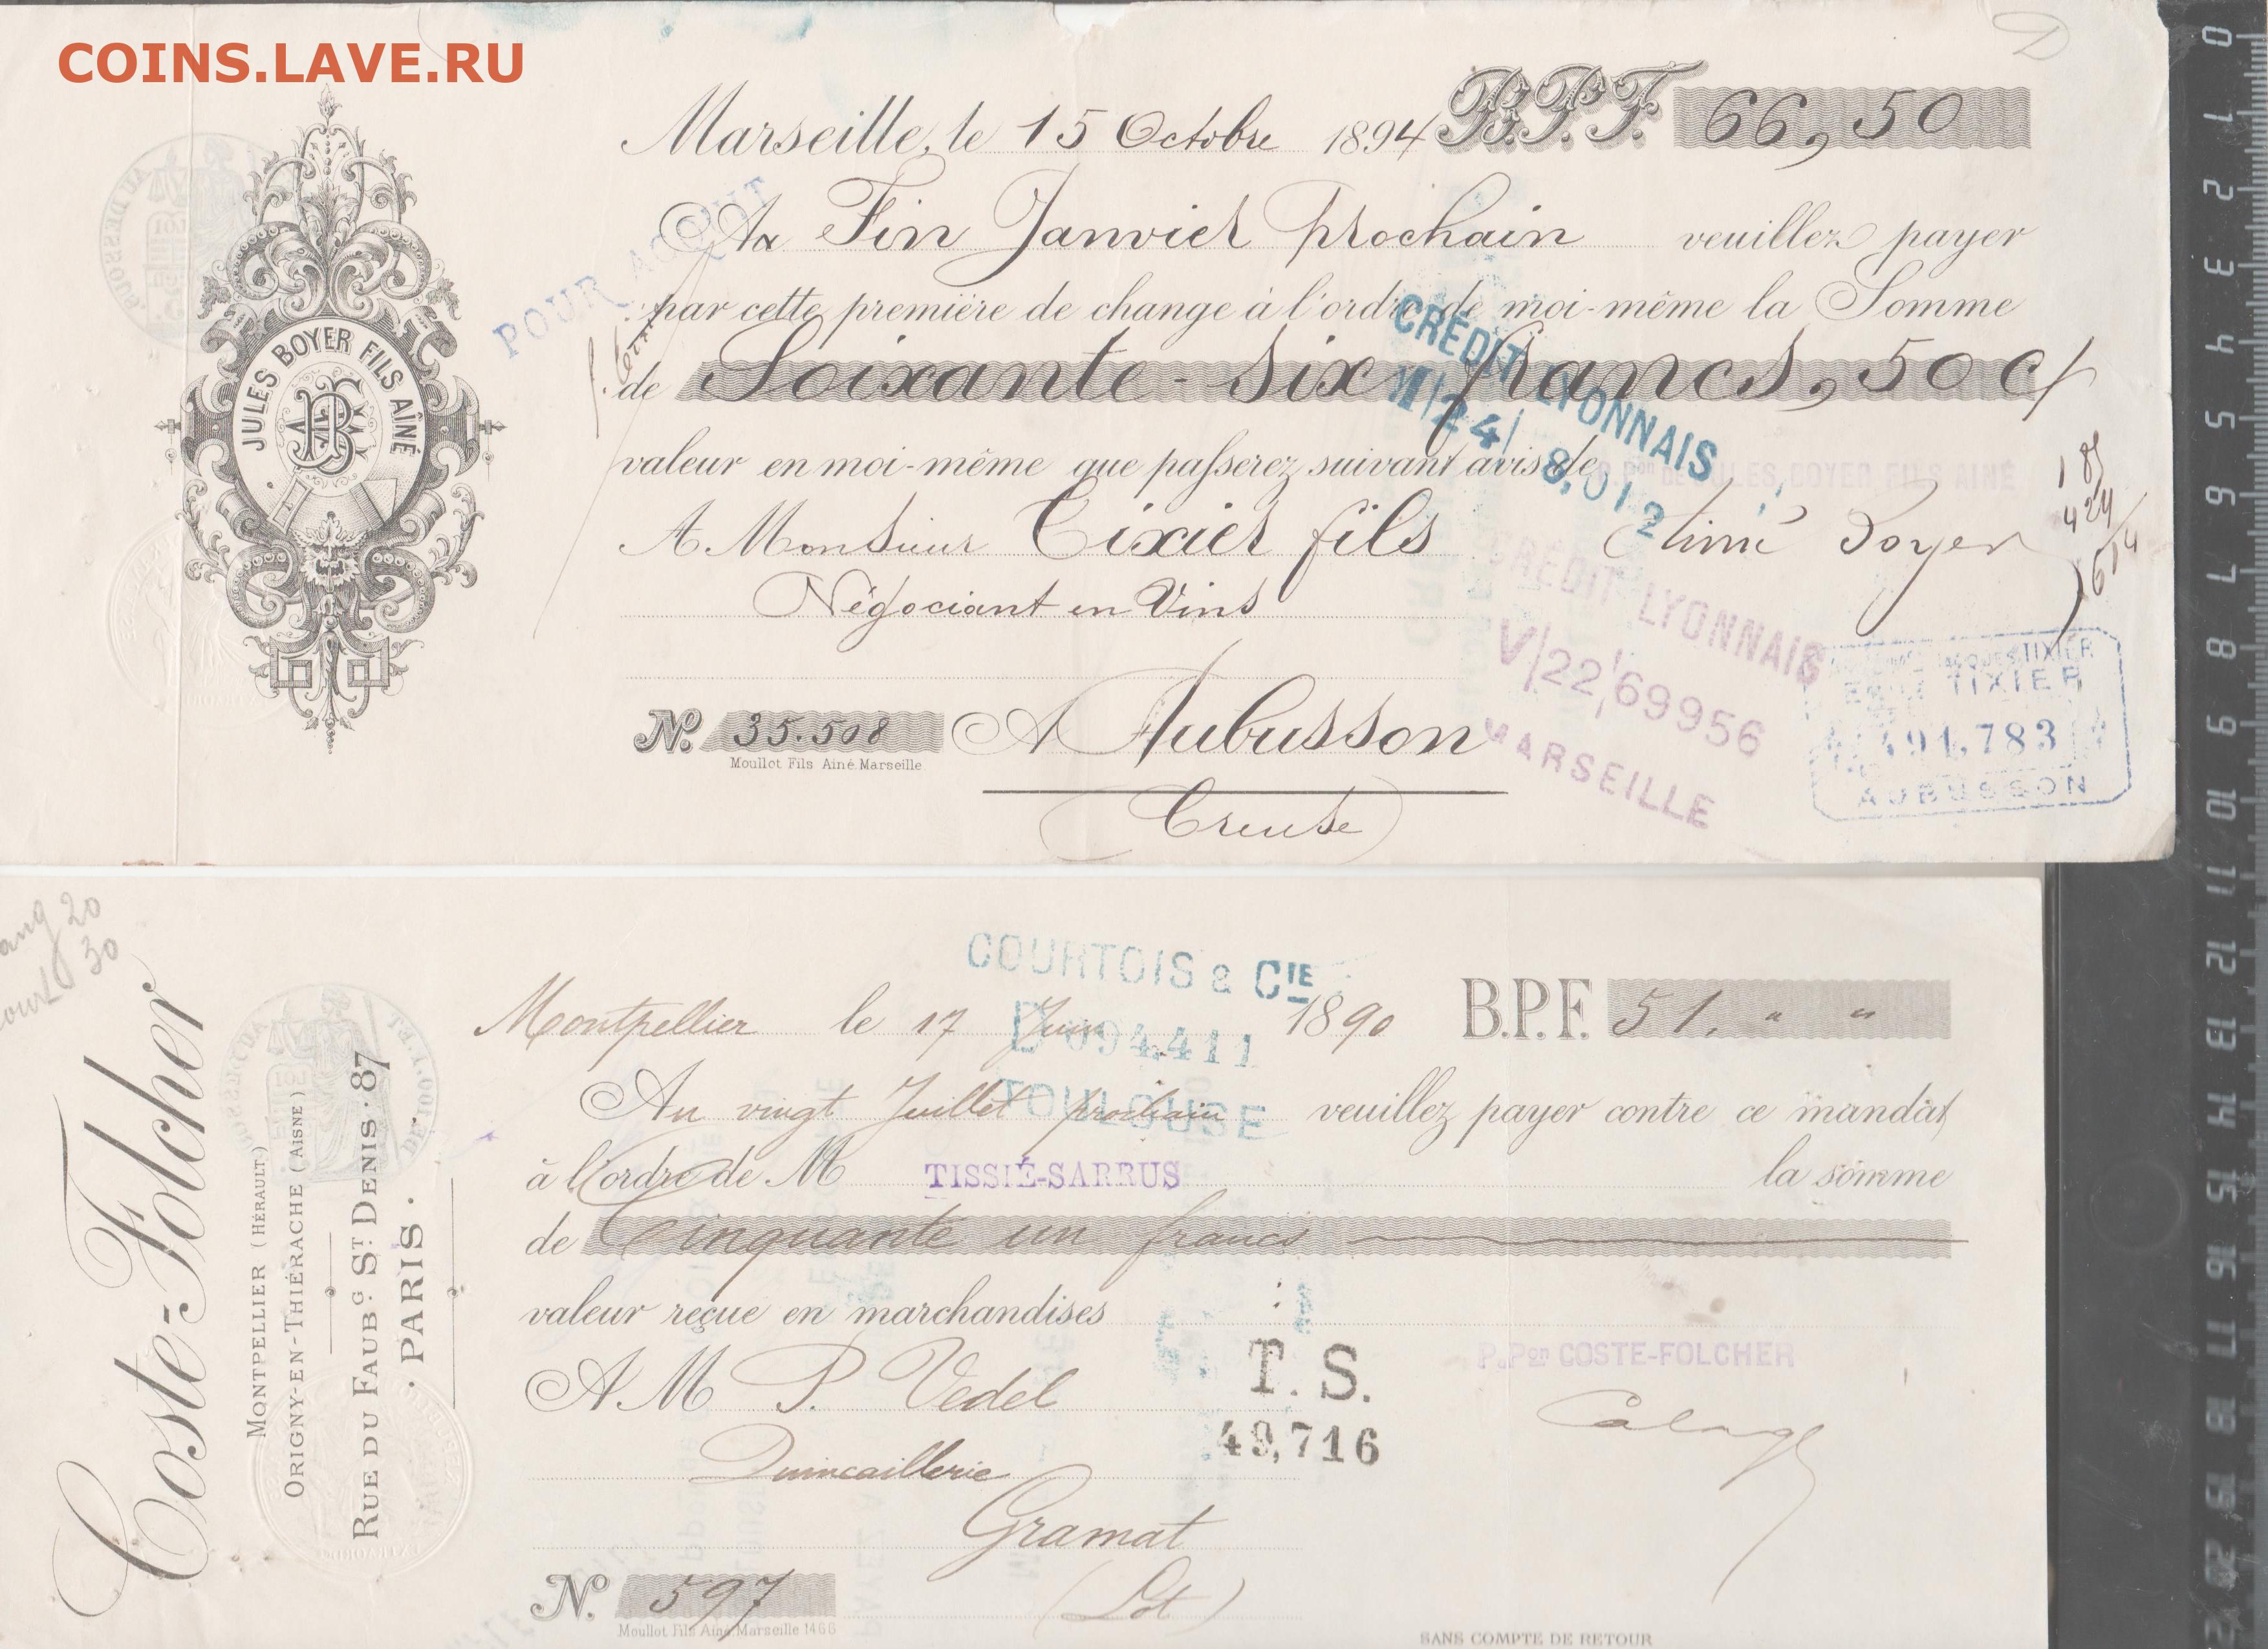 COINS.LAVE.RU
Marseille, le 15 Octobre 1894 B.P.F. 66,50
Au Fin Janvier prochain veuillez payer
POUR ACQUIT
par cette première de change à l'ordre de moi-même la Somme
de Soixante-six francs, 50 c/
CRÉDIT LYONNAIS
8,012
valeur en moi-même que passerez suivant avis de
P.Pon DE JULES BOYER FILS AINÉ
A Monsieur Tixier fils
Boyer
Négociant en Vins
JULES BOYER FILS AÎNÉ
CRÉDIT LYONNAIS
V/22,69956
MARSEILLE
No. 35.508 A Aubusson
Moullot Fils Ainé Marseille
(Creuse)
TIXIER
91,783
AUBUSSON
Coste-Folcher
MONTPELLIER (HÉRAULT)
ORIGNY-EN-THIÉRACHE (AISNE)
RUE DU FAUBG. ST. DENIS. 87
. PARIS .
COURTOIS & CIE
094,411
TOULOUSE
Montpellier le 17 Juin 1890 B.P.F. 51. " "
Au vingt Juillet prochain veuillez payer contre ce mandat
à l'ordre de M TISSIÉ-SARRUS la somme
de Cinquante un francs
valeur reçue en marchandises
A M P. Vedel
T. S.
49,716
P.Pon COSTE-FOLCHER
Quincaillerie
Gramat
(Lot)
No. 597
Moullot Fils Ainé Marseille 1466
SANS COMPTE DE RETOUR
0 1 2 3 4 5 6 7 8 9 10 11 12 13 14 15 16 17 18 19 20